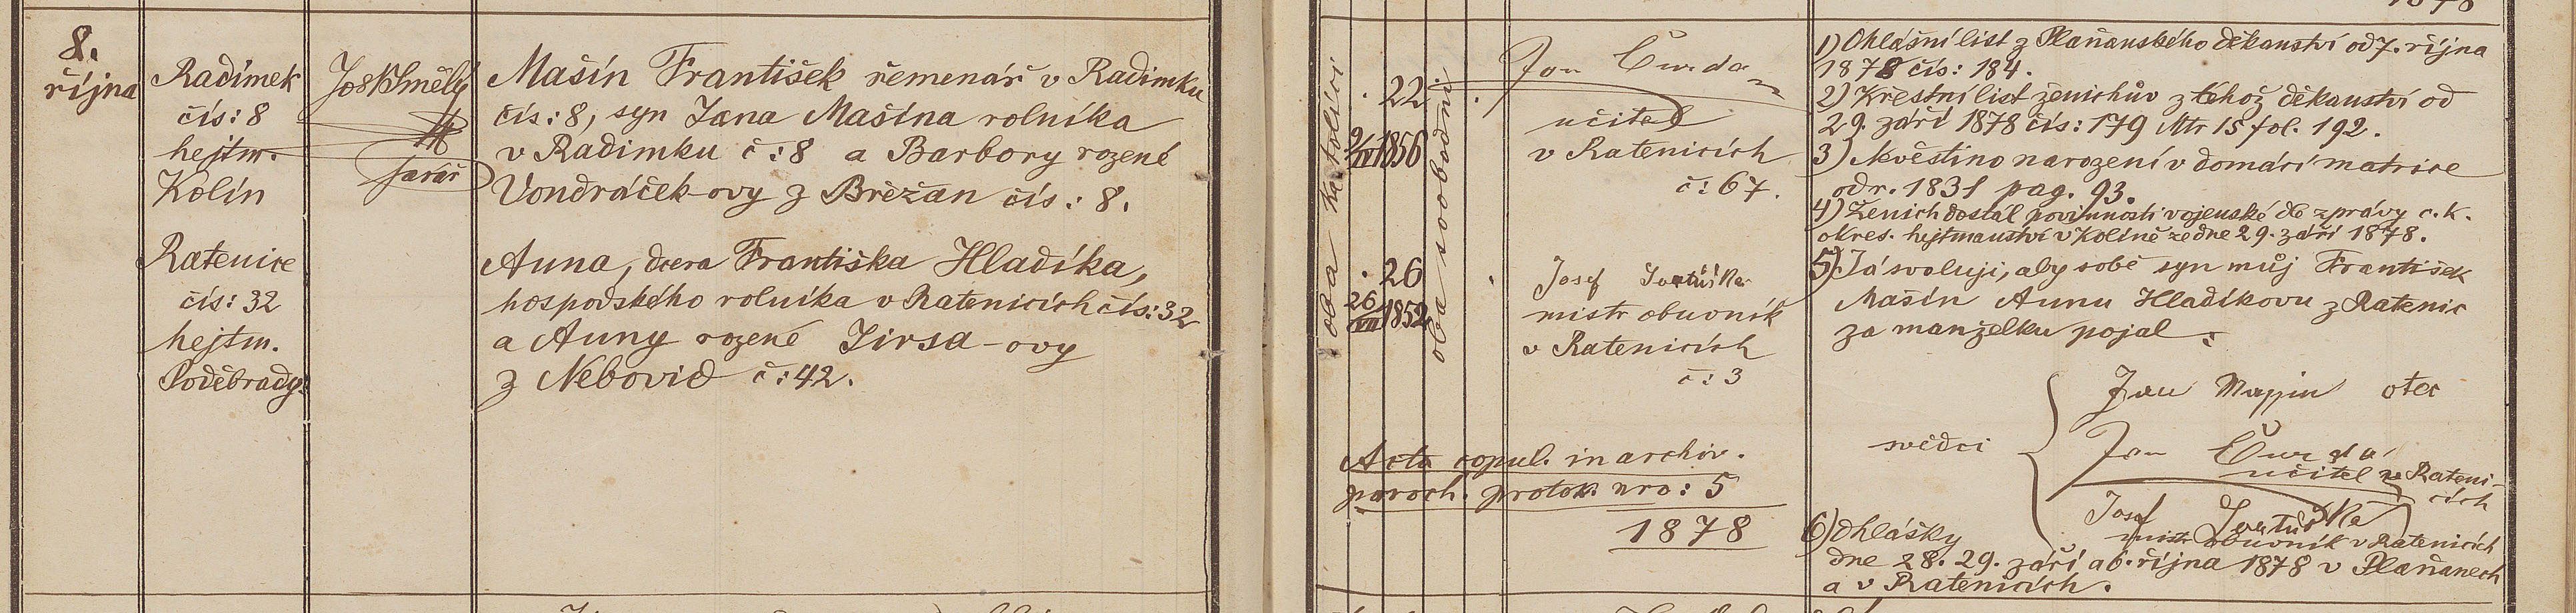 1878
8.
října
Radímek
čís: 8
hejtm.
Kolín
Jos Chmělý
farář
Mašín František řemenář v Radimku
čís: 8, syn Jana Mašína rolníka
v Radimku č: 8 a Barbory rozené
Vondráček-ovy z Břežan čís: 8.
Ratenice
čís: 32
hejtm.
Poděbrady
Anna, dcera Františka Hladíka,
hospodského rolníka v Ratenicích čís: 32
a Anny rozené Jirsa-ovy
z Nebovid č: 42.
oba katolíci
22
9/IV 1856
26
26/VII 1852
oba svobodní
Jan Čurda
učitel
v Ratenicích
č: 67.
Josef
mistr obuvník
v Ratenicích
č: 3
Acta copul. in archiv.
paroch. protok. nro: 5
1878
1) Ohlášní list z Plaňanského děkanství od 7. října
1878 čís: 184.
2) Křestní list ženichův z téhož děkanství od
29. září 1878 čís: 179 Mtr 15 fol. 192.
3) Nevěstino narození v domácí matrice
od r. 1831 pag. 93.
4) Ženich dostál povinnosti vojenské dle zprávy c. k.
okres. hejtmanství v Kolíně ze dne 29. září 1878.
5) Já svoluji, aby sobě syn můj František
Mašín Annu Hladíkovu z Ratenic
za manželku pojal.
Jan Massin otec
svědci
Jan Čurda
učitel v Rateni-
cích
Josef
mistr obuvník v Ratenicích
6) Ohlášky
dne 28. 29. září a 6. října 1878 v Plaňanech
a v Ratenicích.